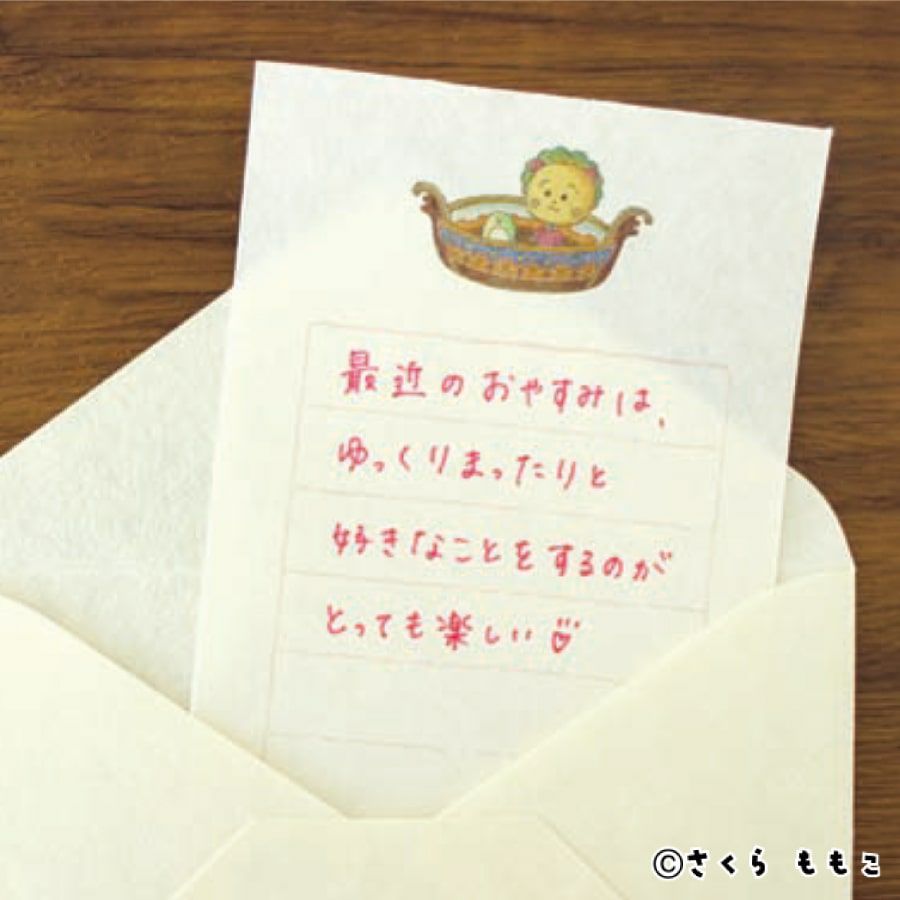 最近のおやすみは、
ゆっくりまったりと
好きなことをするのが
とっても楽しい♡
©さくら ももこ